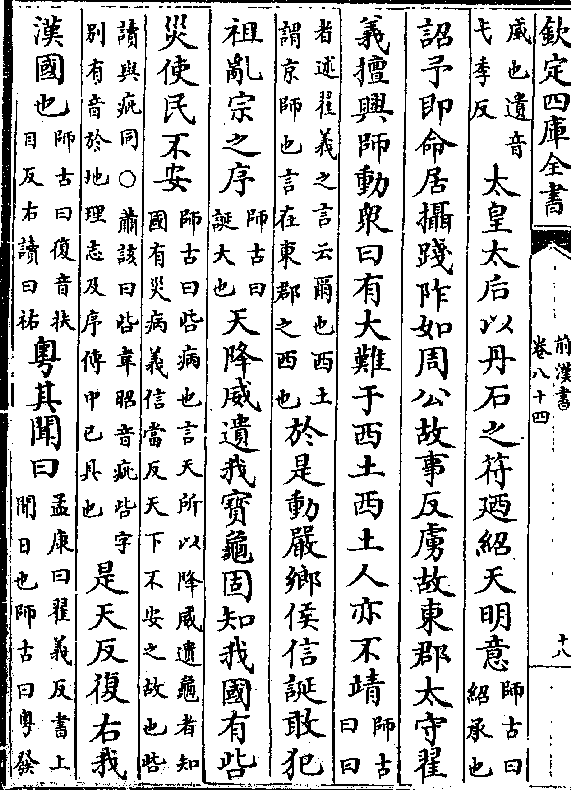 欽定四庫全書
前漢書
卷八十四
十八
威也遺音
弋季反
太皇太后以丹石之符廼紹天明意
師古曰
紹承也
詔予即命居攝踐阼如周公故事反虜故東郡太守翟
義擅興師動衆曰有大難于西土西土人亦不靖
師古
曰曰
者述翟義之言云爾也西土
謂京師也言在東郡之西也
於是動嚴鄉侯信誕敢犯
祖亂宗之序
師古曰
誕大也
天降威遺我寶龜固知我國有呰
災使民不安
師古曰呰病也言天所以降威遺龜者知
國有災病義信當反天下不安之故也呰
讀與疵同○蕭該曰呰韋昭音疵呰字
別有音於地理志及序傳中已具也
是天反復右我
漢國也
師古曰復音扶
目反右讀曰祐
粵其聞曰
孟康曰翟義反書上
聞日也師古曰粵發